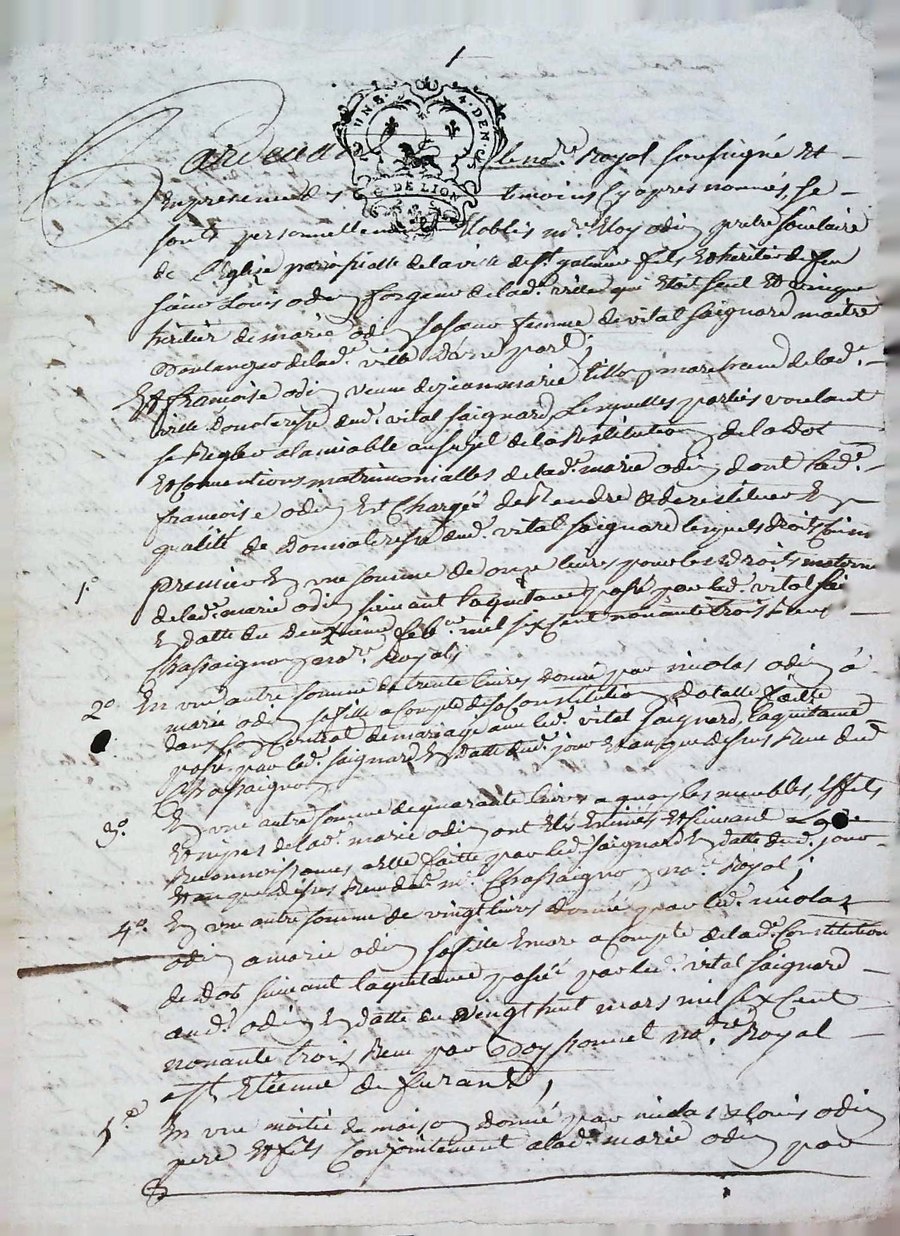 1
UNS. 4. DEN. G. DE LION
Pardevant le no.re Royal soussigné Et
En presence des temoins Cy apres nommés, se
sont personnellement Nobles m.re Eloy odin pretre
de L'Eglise parroissialle de la ville de St galmier fils Et heritier de feu
sieur Louis odin forgeur de lad.e ville qui Etoit seul Et unique
heritier de marie odin sa soeur femme de vital saignard maitre
Boulanger de lad.e ville D'une part;
Et francoise odin veuve de jean marie marchand de lad.e
ville Donataire dud. vital saignard, Lesquelles parties voulant
se Regler a lamiable au sujet de la Restitution de la Dot
Et Conventions matrimonialles de lad.e marie odin dont lad.e
francoise odin Est Chargée de Rendre & de restituer En
qualité de Donnataire dud. vital saignard lesquels droits
1.o premier En une somme de onze livres pour les Droits
de lad.e marie odin suivant la quitance passé par led. vital
En datte du Deuxieme mil six Cent nonante trois
Chassaignon no.re Royal;
2.o En une autre somme de trente livres donné par nicolas odin a
marie odin sa fille a Compte de sa Constitution dotalle faitte
dans son Contrat de mariage avec led. vital saignard, la quitance
passé par led. saignard En datte dud. jour Et an que dessus Reçue dud.
Chassaignon
3.o En une autre somme de quarante livres a quoy les meubles, Effets
Et nipes de lad.e marie odin ont Eté Estimés Et suivant
Reconnoissances a Elle faitte par led. saignard En datte dud. jour
Et an que dessus m.e Chassaignon no.re Royal;
4.o En une autre somme de vingt livres donné par led. nicolas
odin a marie odin sa fille Encore a Compte de lad.e Constitution
de Dot suivant la quitance passée par led. vital saignard
aud. odin En datte du vingt huit mars mil six Cent
nonante trois Reçue par no.re Royal
a St Etienne de furant;
5.o En une moitié de maison donné par nicolas & Louis odin
pere Et fils Conjointement a lad.e marie odin par